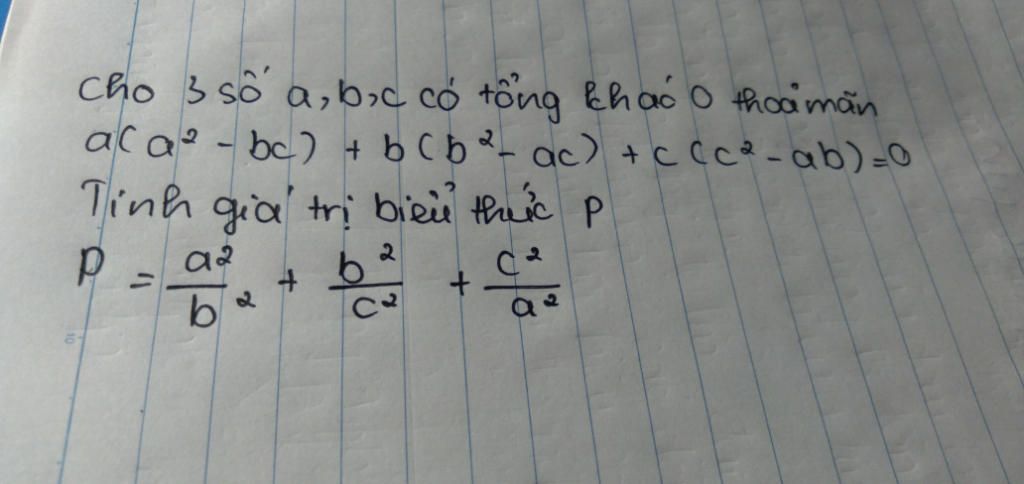 Cho 3 số a, b, c có tổng khác 0 thoả mãn
a(a² - bc) + b(b² - ac) + c(c² - ab) = 0
Tính giá trị biểu thức P
P = a²/b² + b²/c² + c²/a²